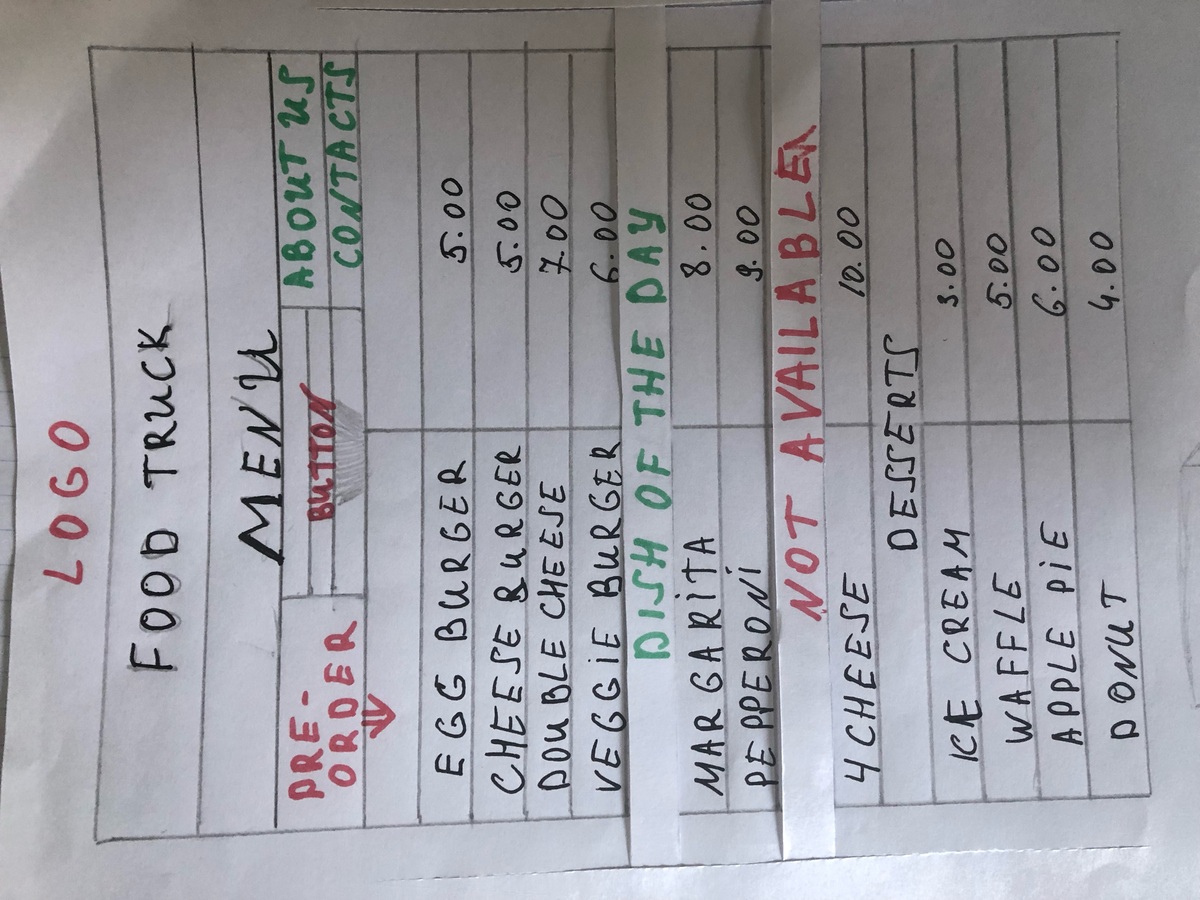 LOGO
FOOD TRUCK
MENU
PRE-
ORDER
BUTTON
ABOUT US
CONTACTS
EGG BURGER 5.00
CHEESE BURGER 5.00
DOUBLE CHEESE 7.00
VEGGIE BURGER 6.00
DISH OF THE DAY
MARGARITA 8.00
PEPPERONI 9.00
NOT AVAILABLE
4 CHEESE 10.00
DESSERTS
ICE CREAM 3.00
WAFFLE 5.00
APPLE PIE 6.00
DONUT 4.00